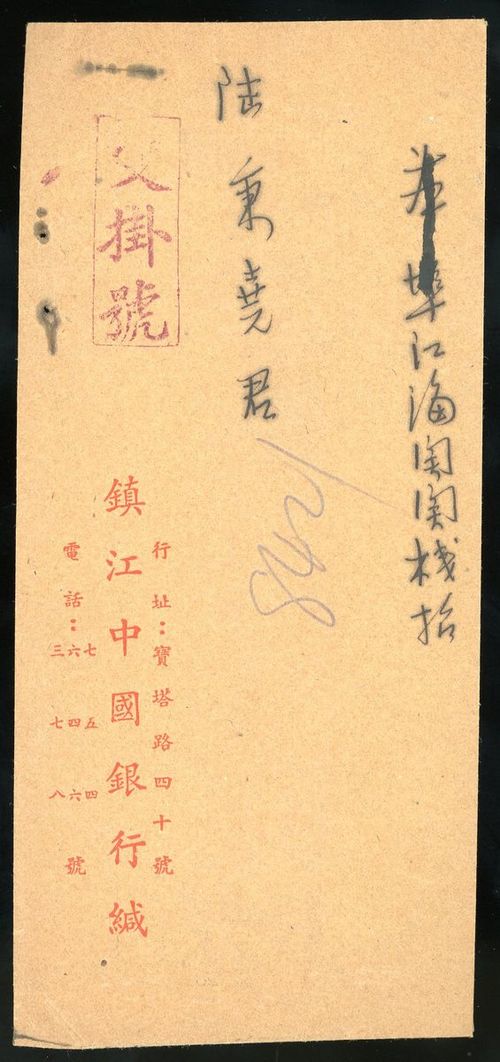 埠江海関関栈
陸秉堯君
双掛號
行址：寶塔路四十號
鎮江中國銀行緘
電話：
七五四
六四六
三七八
號